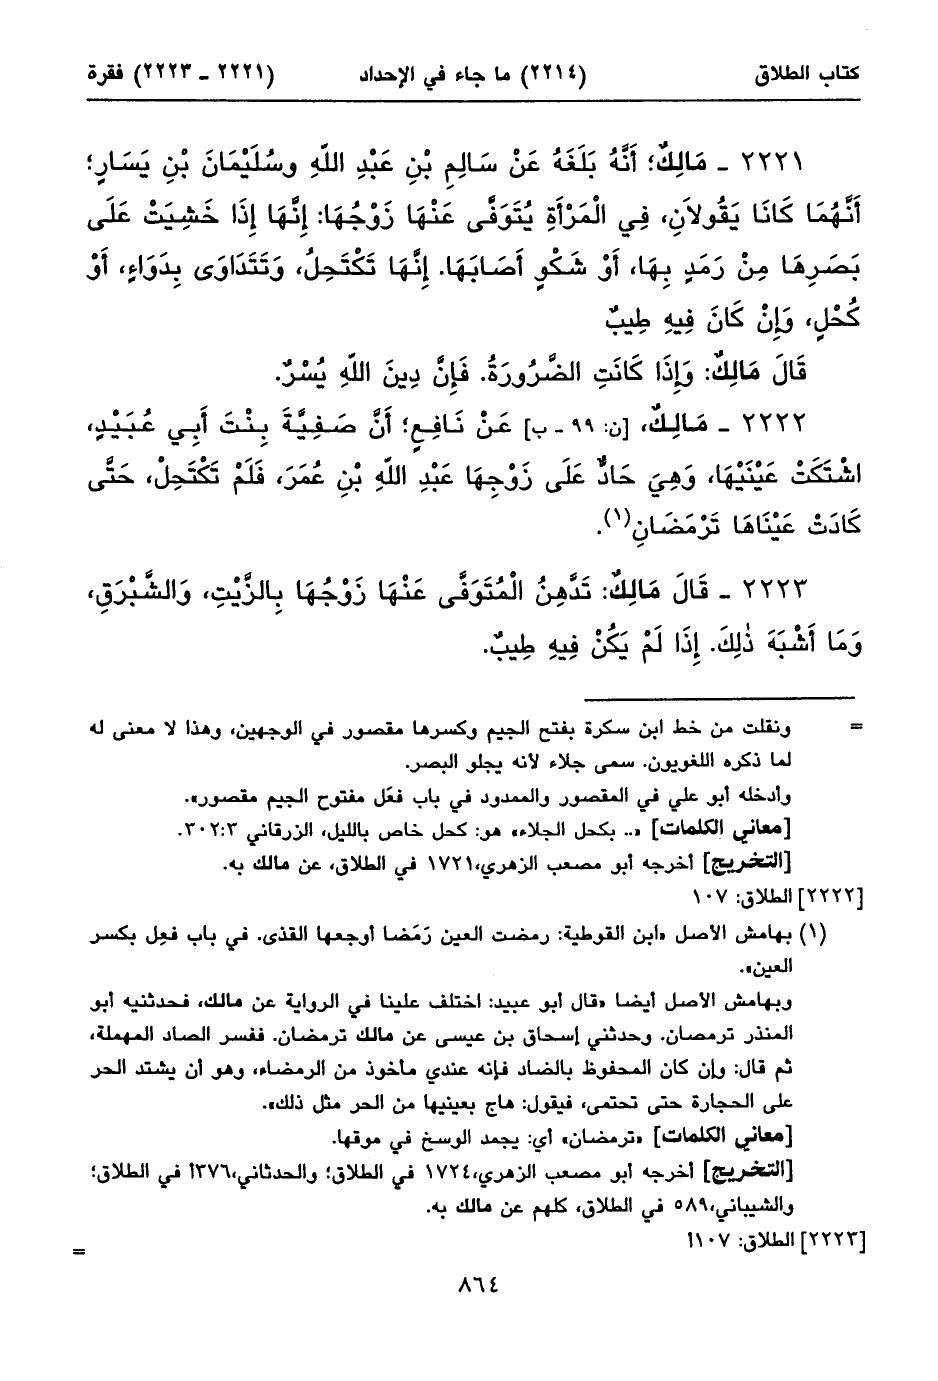 كتاب الطلاق (٢٢١٤) ما جاء في الإحداد (٢٢٢١ - ٢٢٢٣) فقرة
٢٢٢١ - مَالِكٌ؛ أَنَّهُ بَلَغَهُ عَنْ سَالِمِ بْنِ عَبْدِ اللّهِ وسُلَيْمَانَ بْنِ يَسَارٍ؛
أَنَّهُمَا كَانَا يَقُولاَنِ، فِي الْمَرْأَةِ يُتَوَفَّى عَنْهَا زَوْجُهَا: إِنَّهَا إِذَا خَشِيَتْ عَلَى
بَصَرِهَا مِنْ رَمَدٍ بِهَا، أَوْ شَكْوٍ أَصَابَهَا. إِنَّهَا تَكْتَحِلُ، وَتَتَدَاوَى بِدَوَاءٍ، أَوْ
كُحْلٍ، وَإِنْ كَانَ فِيهِ طِيبٌ
قَالَ مَالِكٌ: وَإِذَا كَانَتِ الضَّرُورَةُ. فَإِنَّ دِينَ اللّهِ يُسْرٌ.
٢٢٢٢ - مَالِكٌ، [ن: ٩٩ - ب] عَنْ نَافِعٍ؛ أَنَّ صَفِيَّةَ بِنْتَ أَبِي عُبَيْدٍ،
اشْتَكَتْ عَيْنَيْهَا، وَهِيَ حَادٌّ عَلَى زَوْجِهَا عَبْدِ اللّهِ بْنِ عُمَرَ، فَلَمْ تَكْتَحِلْ، حَتَّى
كَادَتْ عَيْنَاهَا تَرْمَضَانِ(١).
٢٢٢٣ - قَالَ مَالِكٌ: تَدَّهِنُ الْمُتَوَفَّى عَنْهَا زَوْجُهَا بِالزَّيْتِ، وَالشَّبْرَقِ،
وَمَا أَشْبَهَ ذٰلِكَ. إِذَا لَمْ يَكُنْ فِيهِ طِيبٌ.
= ونقلت من خط ابن سكرة بفتح الجيم وكسرها مقصور في الوجهين، وهذا لا معنى له
لما ذكره اللغويون. سمى جلاء لأنه يجلو البصر.
وأدخله أبو علي في المقصور والممدود في باب فعَل مفتوح الجيم مقصور».
[معاني الكلمات] «.. بكحل الجلاء» هو: كحل خاص بالليل، الزرقاني ٣٠٢:٣.
[التخريج] أخرجه أبو مصعب الزهري،١٧٢١ في الطلاق، عن مالك به.
[٢٢٢٢] الطلاق: ١٠٧
(١) بهامش الأصل «ابن القوطية: رمضت العين رَمَضا أوجعها القذى. في باب فعِل بكسر
العين».
وبهامش الأصل أيضا «قال أبو عبيد: اختلف علينا في الرواية عن مالك، فحدثنيه أبو
المنذر ترمصان. وحدثني إسحاق بن عيسى عن مالك ترمضان. ففسر الصاد المهملة،
ثم قال: وإن كان المحفوظ بالضاد فإنه عندي مأخوذ من الرمضاء، وهو أن يشتد الحر
على الحجارة حتى تحتمى، فيقول: هاج بعينيها من الحر مثل ذلك».
[معاني الكلمات] «ترمضان» أي: يجمد الوسخ في موقها.
[التخريج] أخرجه أبو مصعب الزهري،١٧٢٤ في الطلاق؛ والحدثاني،٣٧٦أ في الطلاق؛
والشيباني،٥٨٩ في الطلاق، كلهم عن مالك به.
[٢٢٢٣] الطلاق: ١٠٧أ
=
٨٦٤